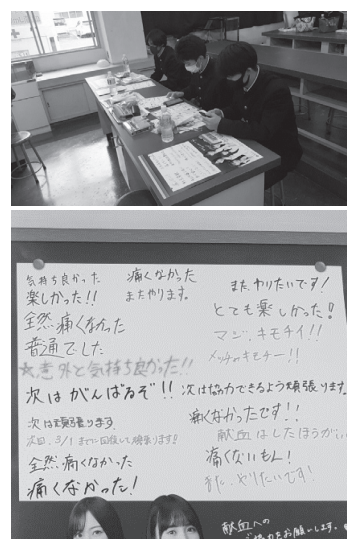 気持ち良かった
楽しかった!!
全然痛くなかった
普通でした
☆意外と気持ち良かった!!
次はがんばるぞ!!
次は頑張ります
次回、3/1までに回復して頑張ります!
全然痛くなかった
痛くなかった!
痛くなかった
またやります。
また、やりたいです!
とても楽しかった!
マジ、キモチイ!!
メッチャキモチー!!
次は協力できるよう頑張ります。
痛くなかったです!!
献血はしたほうがいい
痛くないもん!
また、やりたいです!
献血への
ご協力をお願いします。